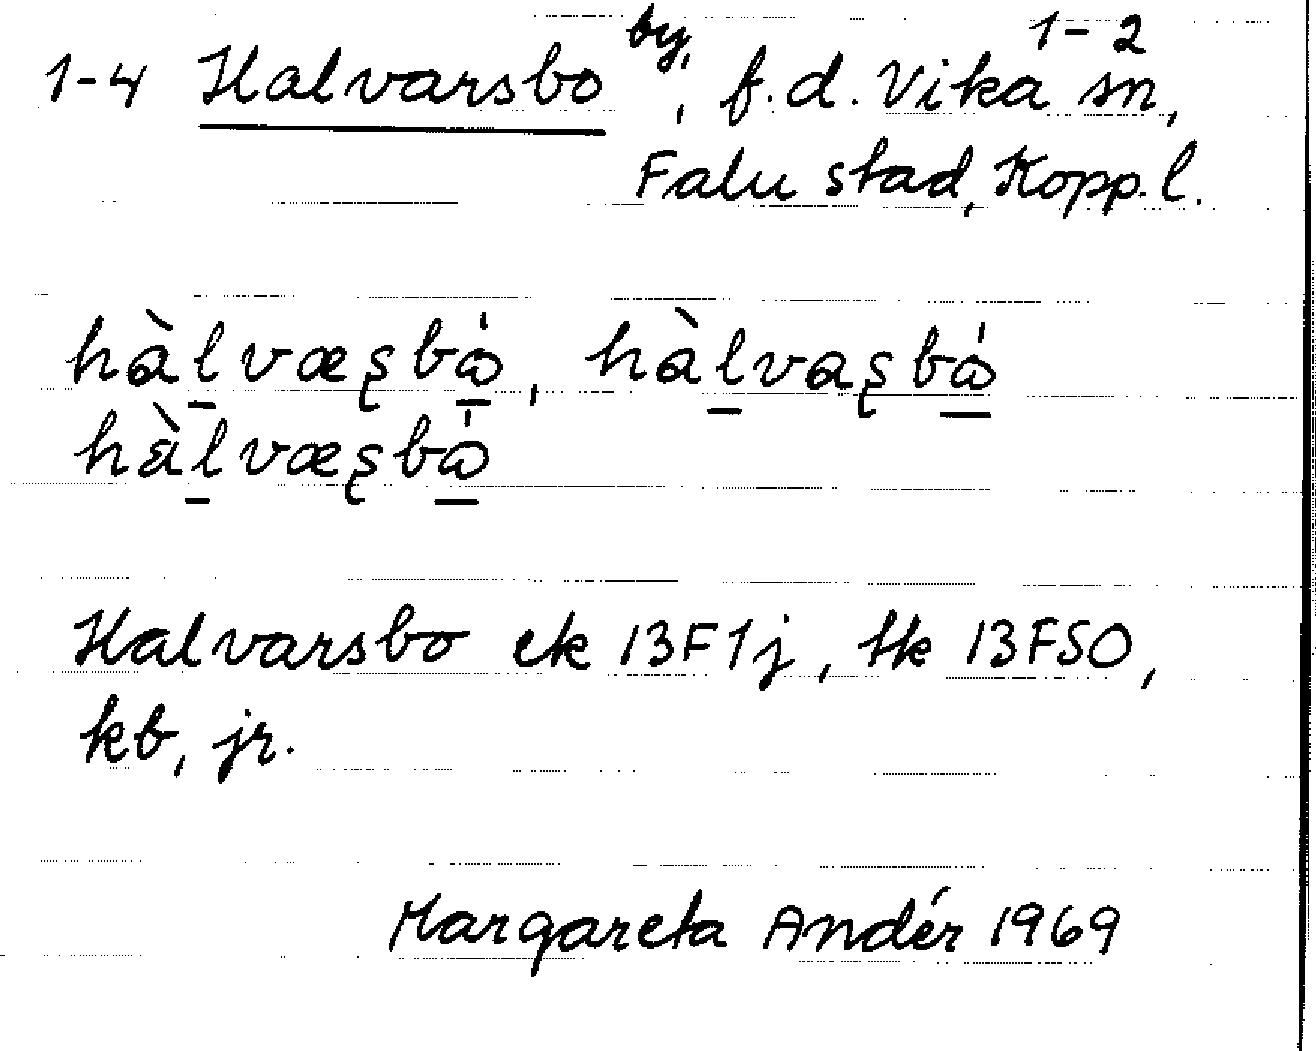 1-4 Halvarsbo by, f.d. Vika sn, 1-2
Falu stad, Kopp. l.
hàl̠væʂbὼ̠, hàl̠vaʂbὼ̠
hàl̠væʂbὼ̠
Halvarsbo ek 13F1j, tk 13F50,
kb, jr.
Margareta Andér 1969